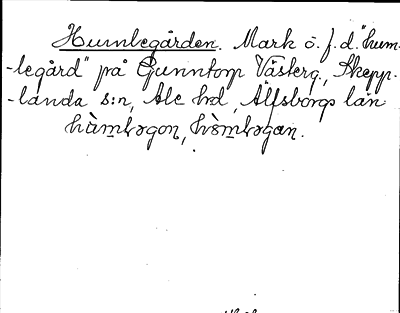 Humlegården. Mark ö. f. d. "hum-
-legård" på Gunntorp Västerg., Skepp-
-landa s:n, Ale hd, Älfsborgs län